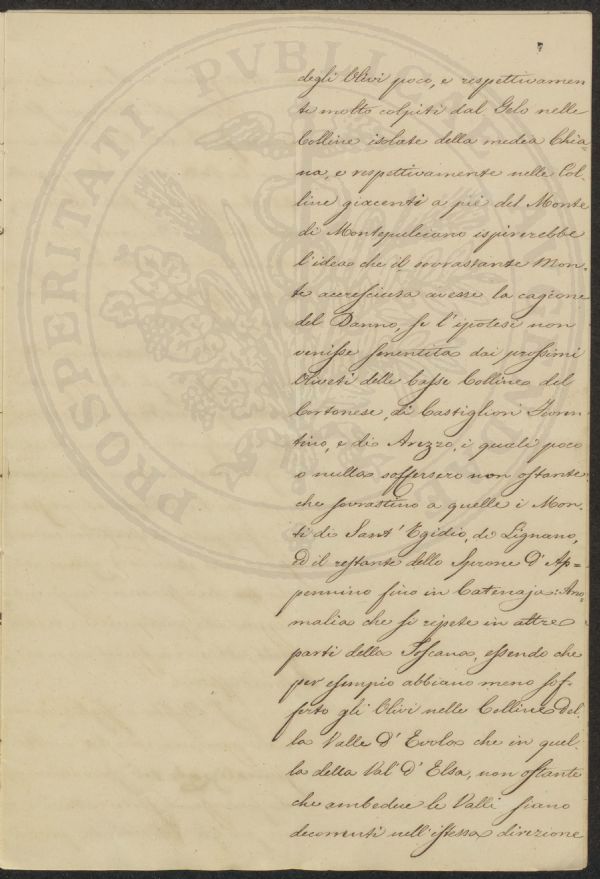 7
degli Olivi poco, e respettivamen
te molto colpiti dal Gelo nelle
Colline isolate della media Chia-
na, e respettivamente nelle Col-
line giacenti a piè del Monte
di Montepulciano ispirerebbe
l'idea che il sovrastante Mon-
te accresciuta avesse la cagione
del Danno, se l'ipotesi non
venisse smentita dai prossimi
Oliveti delle basse Colline del
Cortonese, di Castiglion Fioren-
tino, e di Arezzo, i quali poco
o nulla soffersero non ostante
che sovrastino a quelle i Mon-
ti di Sant'Egidio, di Lignano,
ed il restante dello Sprone d'Ap=
pennino fino in Catenaja: Ano-
malia che si ripete in altre
parti della Toscana, essendo che
per esempio abbiano meno sof-
ferto gli Olivi nelle Colline del-
la Valle d'Evola che in quel-
la della Val d'Elsa, non ostante
che ambedue le Valli siano
decorrenti nell'istessa direzione